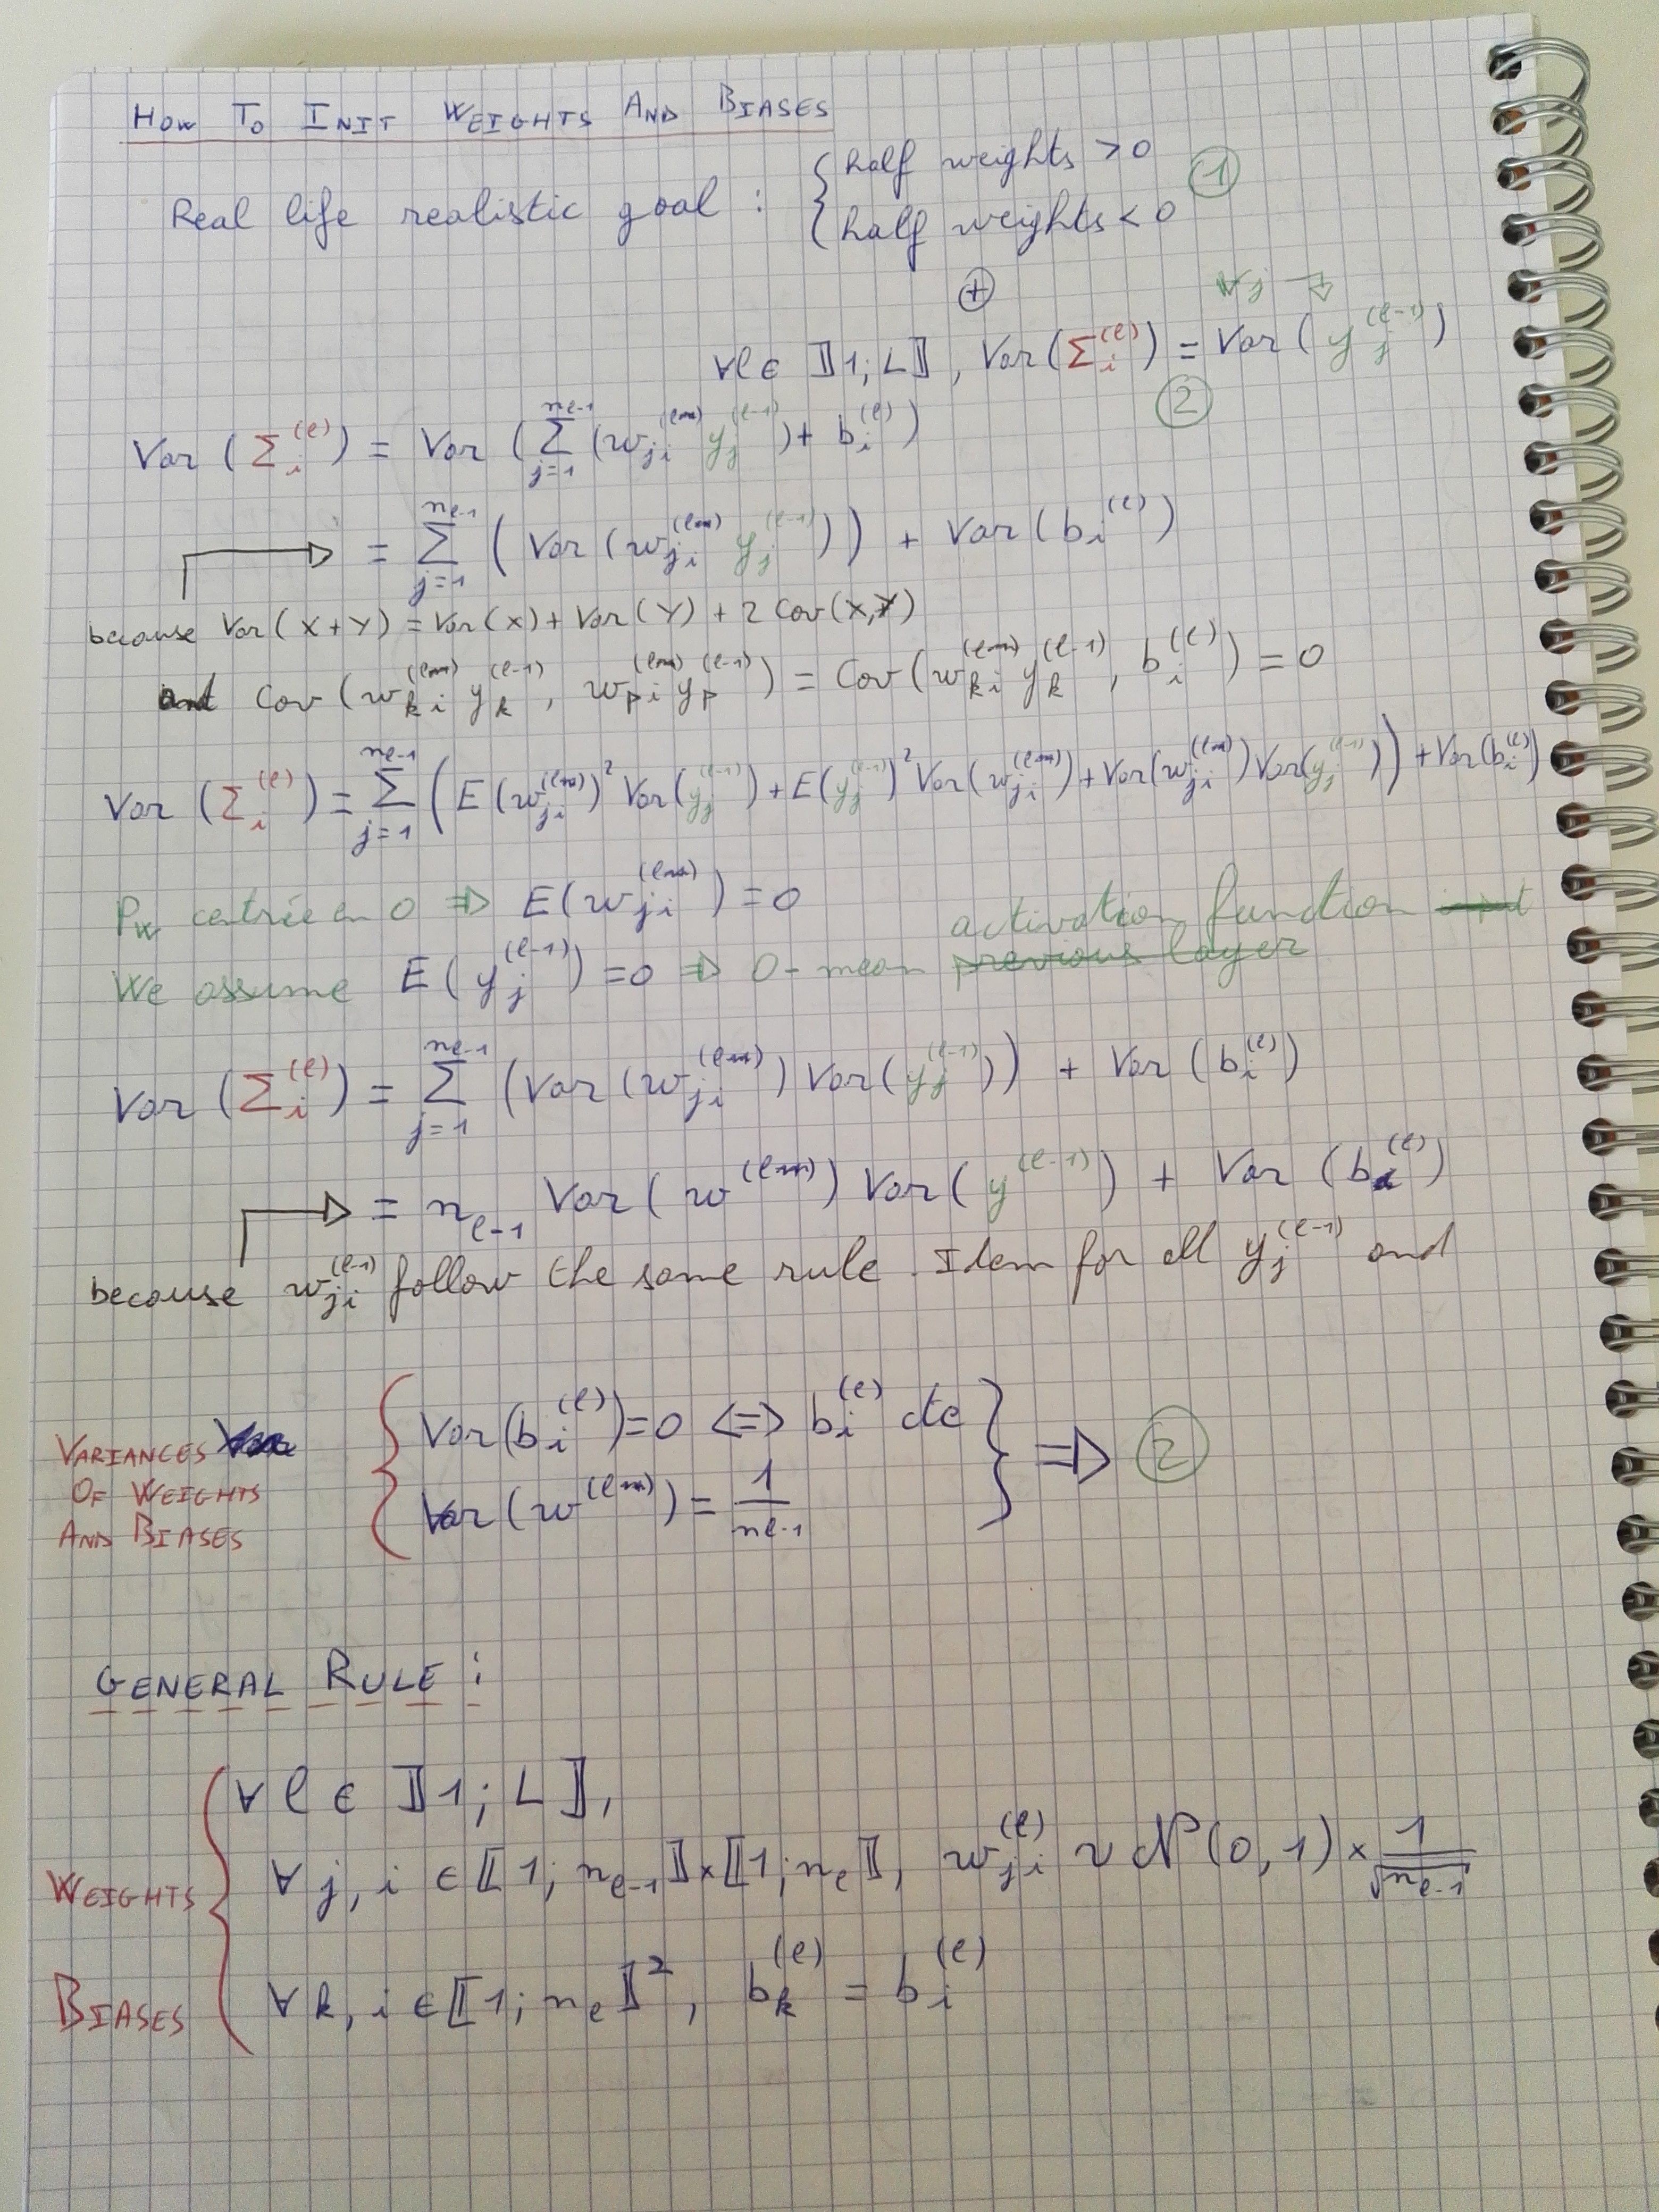 HOW TO INIT WEIGHTS AND BIASES
Real life realistic goal : { half weights > 0 ①
half weights < 0
⊕
∀j →
∀l ∈ ⟧1; L⟧, Var(Σ_i^(l)) = Var(y_j^(l-1))
②
Var(Σ_i^(l)) = Var(∑_{j=1}^{n_{l-1}} (w_{ji}^(l) y_j^(l-1)) + b_i^(l))
= ∑_{j=1}^{n_{l-1}} (Var(w_{ji}^(l) y_j^(l-1))) + Var(b_i^(l))
because Var(X+Y) = Var(X) + Var(Y) + 2 Cov(X,Y)
and Cov(w_{ki}^(l) y_k^(l-1), w_{pi}^(l) y_p^(l-1)) = Cov(w_{ki}^(l) y_k^(l-1), b_i^(l)) = 0
Var(Σ_i^(l)) = ∑_{j=1}^{n_{l-1}} (E(w_{ji}^(l))² Var(y_j^(l-1)) + E(y_j^(l-1))² Var(w_{ji}^(l)) + Var(w_{ji}^(l)) Var(y_j^(l-1))) + Var(b_i^(l))
P_w centrée en 0 ⇒ E(w_{ji}^(l)) = 0
activation function
We assume E(y_j^(l-1)) = 0 ⇒ 0-mean previous layer
Var(Σ_i^(l)) = ∑_{j=1}^{n_{l-1}} (Var(w_{ji}^(l)) Var(y_j^(l-1))) + Var(b_i^(l))
= n_{l-1} Var(w^(l)) Var(y^(l-1)) + Var(b_i^(l))
because w_{ji}^(l-1) follow the same rule. Idem for all y_j^(l-1) and
VARIANCES { Var(b_i^(l)) = 0 <=> b_i^(l) cte } ⇒ ②
OF WEIGHTS
AND BIASES
Var(w^(l)) = 1/n_{l-1}
GENERAL RULE :
∀ l ∈ ⟧1; L⟧,
WEIGHTS { ∀ j, i ∈ ⟦1; n_{l-1}⟧×⟦1; n_l⟧, w_{ji}^(l) ~ N(0,1) × 1/√n_{l-1}
BIASES ∀ k, i ∈ ⟦1; n_l⟧², b_k^(l) = b_i^(l)